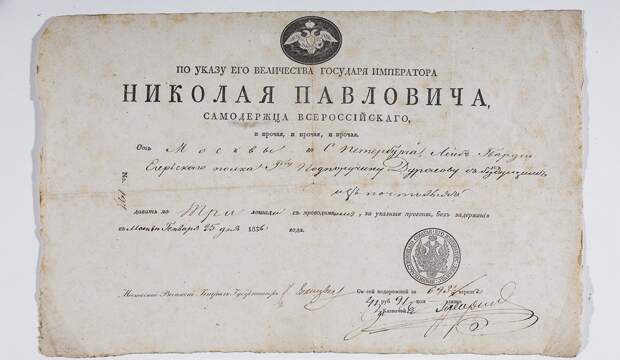 ПО УКАЗУ ЕГО ВЕЛИЧЕСТВА ГОСУДАРЯ ИМПЕРАТОРА
НИКОЛАЯ ПАВЛОВИЧА,
САМОДЕРЖЦА ВСЕРОССІЙСКАГО,
и прочая, и прочая, и прочая.
Отъ Москвы до С Петербурга, Лейбъ Гвардіи
Егерскаго полка Подпоручику Дурасову съ будущимъ
изъ почтовыхъ
давать по три лошади съ проводникомъ, за указныя прогоны, безъ задержанія
Москва Генваря 25 дня 1836 года.
Московскій Военный Генералъ Губернаторъ
Съ сей подорожной за 693 верстъ
41 руб 91 коп